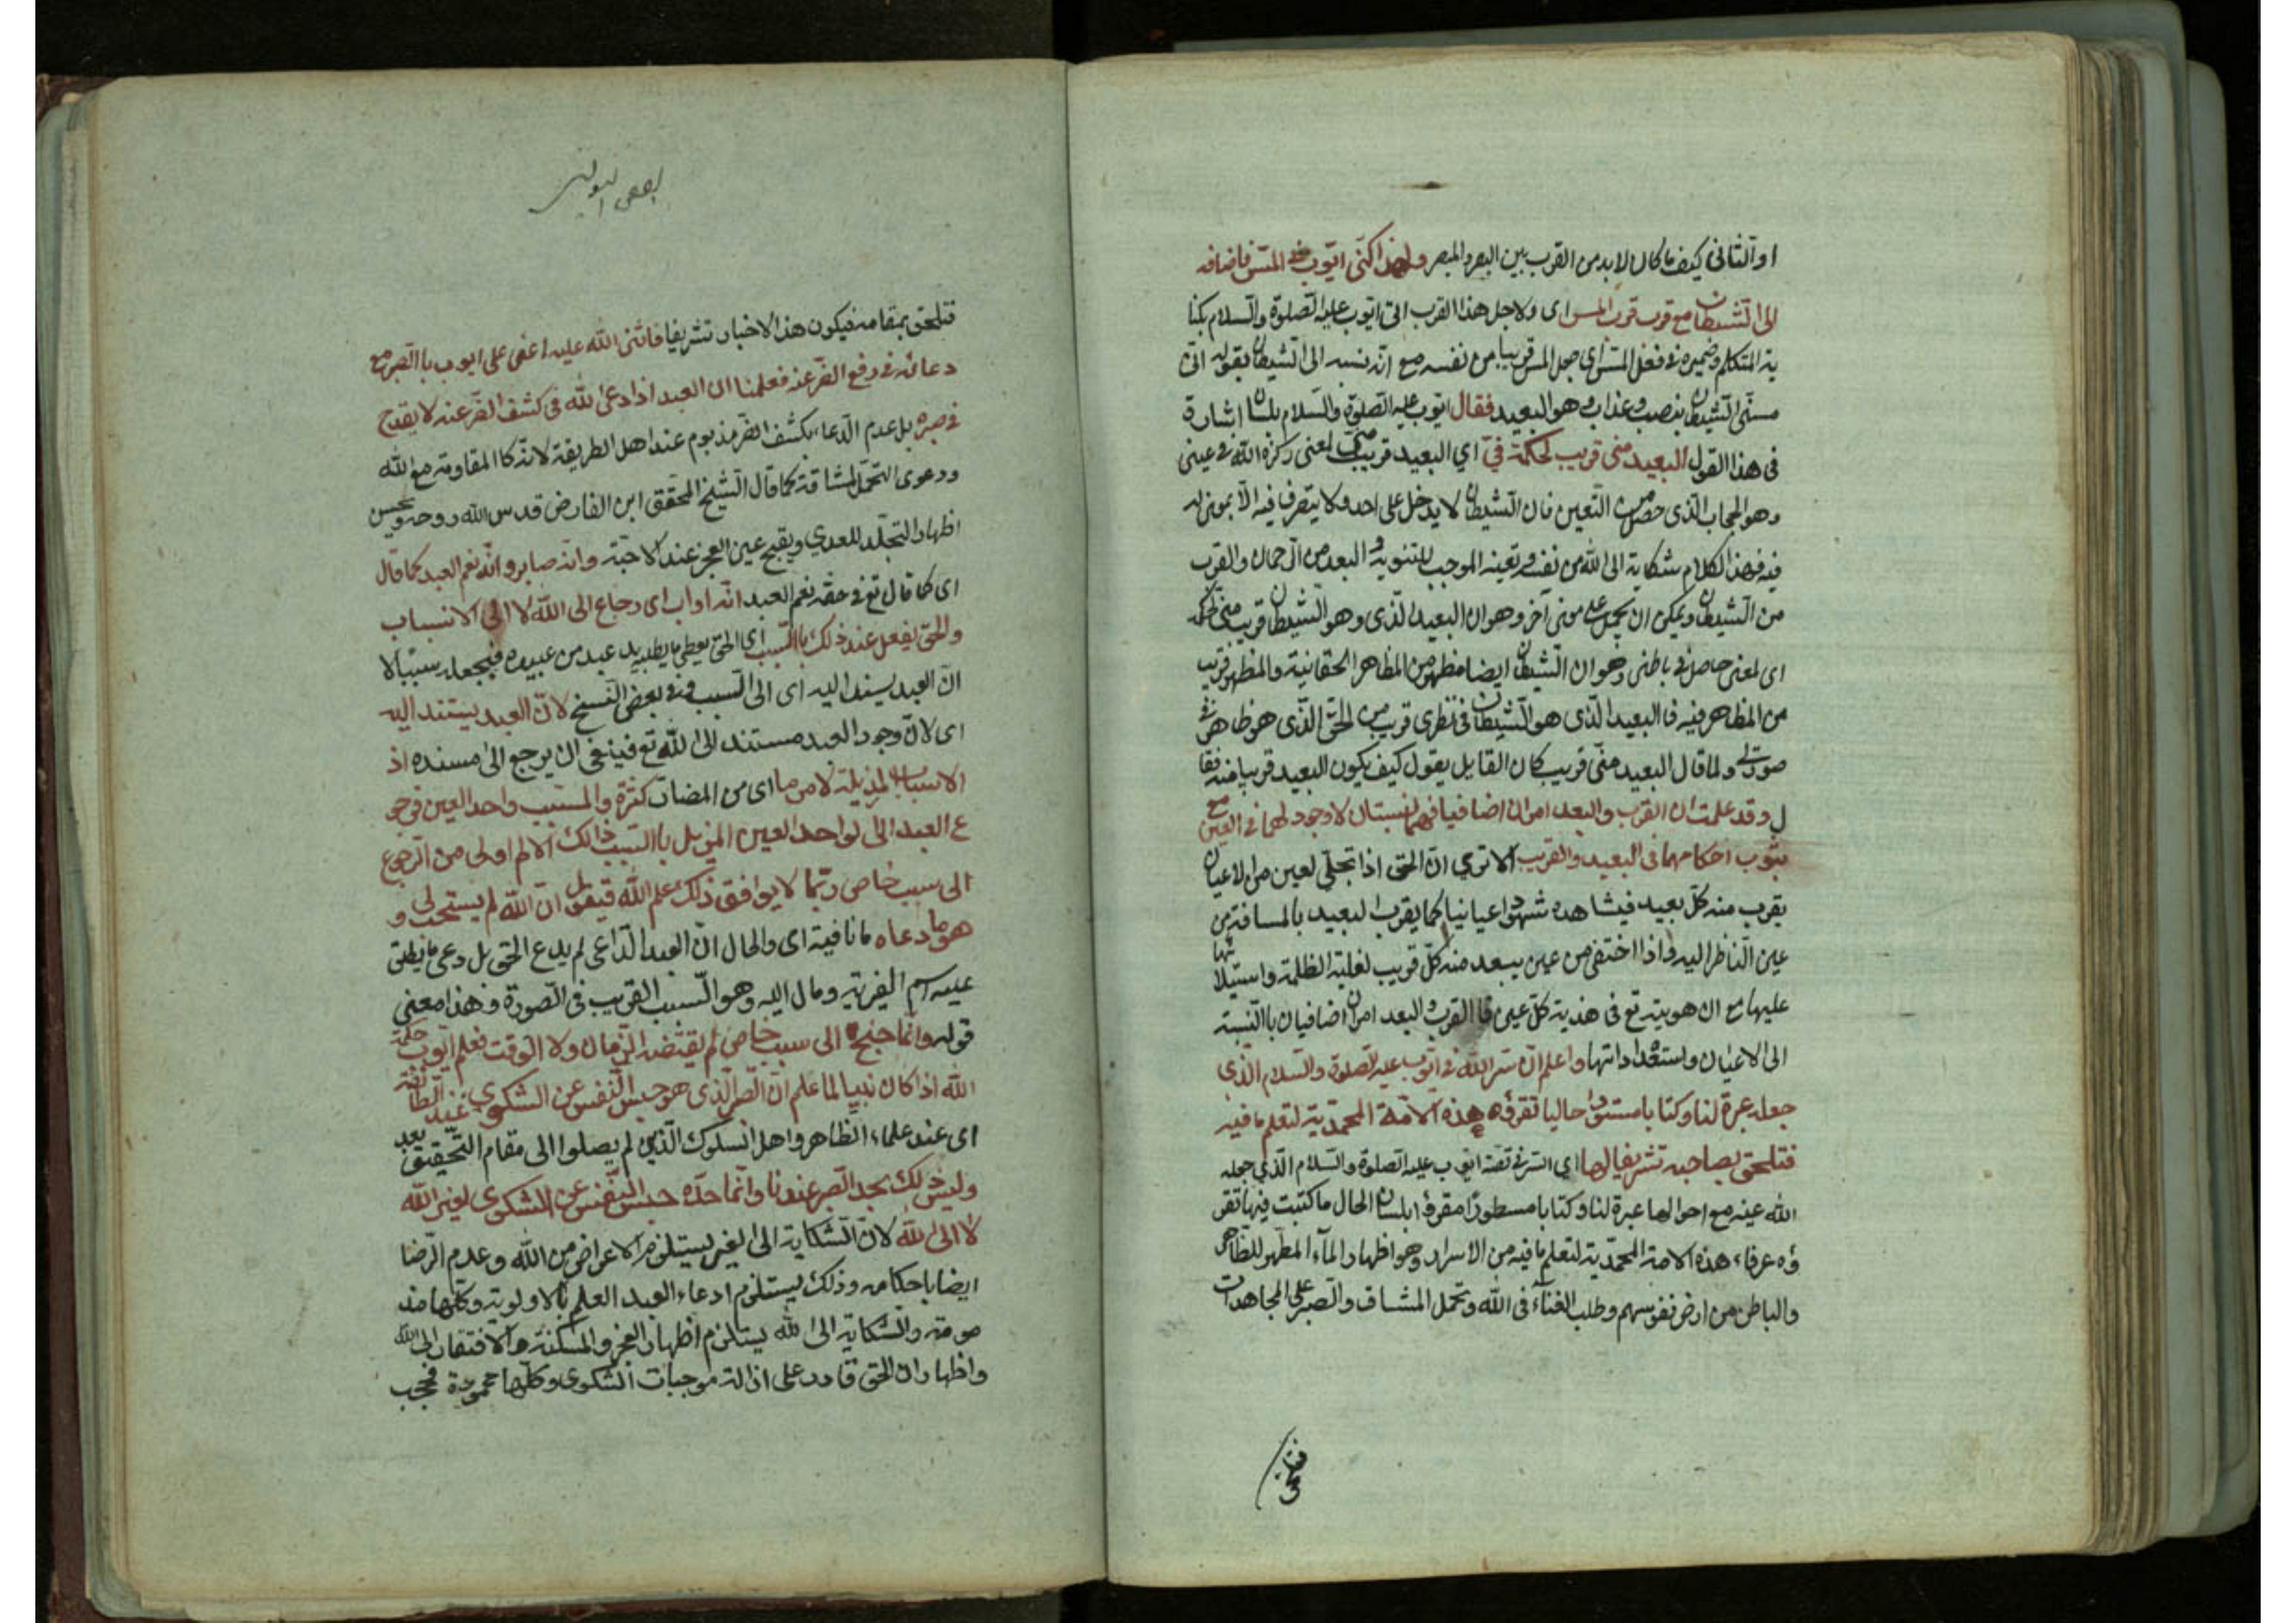 او الثانى كيف ما كان لا بد من القرب بين البصر والمبصر ولهذا كنى ايوب فى المس فاضافه
الى الشيطان مع قرب المس اى ولاجل هذا القرب اتى ايوب عليه الصلوة والسلام بكنا
ية المتكلم وضميره فى فعل المس اى جعل المس قريبا من نفسه مع انه نسبه الى الشيطان بقوله انى
مسنى الشيطان بنصب وعذاب وهو البعيد فقال ايوب عليه الصلوة والسلام بلسان اشارة
فى هذا القول البعيد منى قريب لحكمة فىّ اي البعيد قريب منى لمعنى ركزه الله فى عينى
وهو الحجاب الذى حصل من التعين فان الشيطان لا يدخل على احد ولا يتصرف فيه الا بمعنى له
فيه فهذا الكلام شكاية الى الله من نفسه وتعينه الموجب للثنوية و البعد من الرحمان والقرب
من الشيطان ويمكن ان يحمل على معنى آخر وهو ان البعيد الذى وهو الشيطان قريب منى لحكمة
اى لمعنى حاصل فى باطنى وهو ان الشيطان ايضا مظهر من المظاهر الحقانية والمظهر قريب
من المظاهر فيه فالبعيد الذى هو الشيطان فى نظرى قريب من الحق الذى هو ظاهر فى
صورتى ولما قال البعيد منى قريب كان القايل يقول كيف يكون البعيد قريبا منه فقا
ل وقد علمت ان القرب والبعد امران اضافيا فهما نسبتان لا وجود لهما فى العين مع
ثبوت احكامهما فى البعيد والقريب الا تري ان الحق اذا تجلى لعين من الاعيان
يقرب منه كل بعيد فيشاهده شهودا عيانيا كما يقرب البعيد بالمسافة من
عين الناظر اليه واذا اختفى من عين يبعد منه كل قريب لغلبة الظلمة واستيلائها
عليها مع ان هويته تع فى هذية كل عين فالقرب والبعد امران اضافيان باالنسبة
الى الاعيان واستعداداتها واعلم ان سر الله فى ايوب عليه الصلوة والسلام الذى
جعله عبرة لنا وكتابا مسطورا حاليا تقرؤه هذه الامة المحمدية لتعلم ما فيه
فتلحق بصاحبه تشريفا لها اي السر فى قصة ايوب عليه الصلوة والسلام الذي جعله
الله عينه مع احوالها عبرة لنا وكتابا مسطورا مقروءا بلسان الحال ما كتبت فيها تقر
ؤه عرفاء هذه الامة المحمدية لتعلم ما فيه من الاسرار وهو اظهار المآء المطهر للظاهر
والباطن من ارض نفوسهم وطلب الفناء فى الله وتحمل المشاق والصبر على المجاهدات
فتلحق
فتلحق بمقامه فيكون هذا الاخبار تشريفا فاثنى الله عليه اعنى على ايوب باالصبر مع
دعائه فى رفع الضر عنه فعلمنا ان العبد اذا دعى الله فى كشف الضر عنه لا يقدح
فى صبره بل عدم الدعاء بكشف الضر مذموم عند اهل الطريقة لانه كاالمقاومة مع الله
ودعوى التحمل لمشاقه كما قال الشيخ المحقق ابن الفارض قدس الله روحه ويحسن
اظهار التجلد للعدي ويقبح عين العجز عند الاحبة وانه صابر وانه نعم العبد كما قال
اى كما قال تع فى حقه نعم العبد انه اواب اى رجاع الى الله لا الى الانسباب
والحق يفعل عند ذلك باالسبب اى الحق يعطى ما يطلب يد عبد من عبيده فيجعله سببا لا
ان العبد يسند اليه اى الى السبب وفى بعض النسخ لان العبد يستند اليه
اى لان وجود العبد مستند الى الله تع فينبغى ان يرجع الى مسنده اذ
الاسباب المزيلة لامر ما اى من المضار كثرة والمسبب واحد العين فرجو
ع العبد الى الواحد العين المزيل باالسبب ذالك الالم اولى من الرجوع
الى سبب خاص ربما لا يوافق ذلك علم الله فيقول ان الله لم يستجب لى و
هو ما دعاه ما نافية اى والحال ان العبد الداعى لم يدع الحق بل دعى ما يطلق
عليه اسم الغيرية ومال اليه وهو السبب القريب فى الصورة وهذا معنى
قوله وانما جنح الى سبب خاص لم يقتضه الزمان ولا الوقت فعلم ايوب حكمة
الله اذا كان نبيا لما علم ان الصبر الذى هو حبس النفس عن الشكوي عند الطائفة
اى عند علماء الظاهر واهل السلوك الذين لم يصلوا الى مقام التحقيق بعد
وليس ذلك بحد الصبر عندنا وانما حده حبس النفس عن الشكوى لغير الله
لا الى الله لان الشكاية الى الغير يستلزم الاعراض من الله وعدم الرضا
ايضا باحكامه وذلك يستلزم ادعاء العبد العلم بالاولوية وكلها مذ
مومة والشكاية الى الله يستلزم اظهار العجز والمسكنة والافتقار الى الله
واظهار ان الحق قادر على ازالة موجبات الشكوى وكلها محمودة فحجب